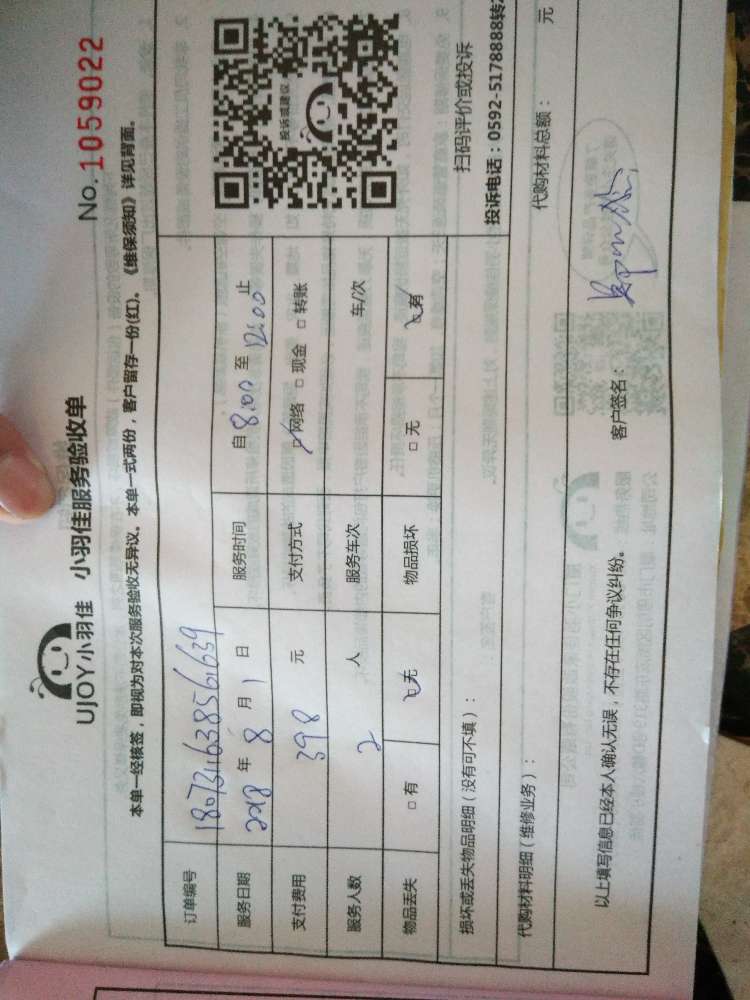 UJOY小羽佳 小羽佳服务验收单
No. 1059022
本单一经核签，即视为对本次服务验收无异议。本单一式两份，客户留存一份(红)。《维保须知》详见背面。
订单编号 180731638561639
服务日期 2018 年 8 月 1 日 服务时间 自 8:00 至 12:00 止
支付费用 398 元 支付方式 □网络 □现金 □转账
服务人数 2 人 服务车次 车/次
物品丢失 □有 □无 物品损坏 □无 □有
投诉或建议
扫码评价或投诉
投诉电话：0592-5178888转
损坏或丢失物品明细（没有可不填）：
代购材料明细（维修业务）： 代购材料总额： 元
以上填写信息已经本人确认无误，不存在任何争议纠纷。 客户签名：